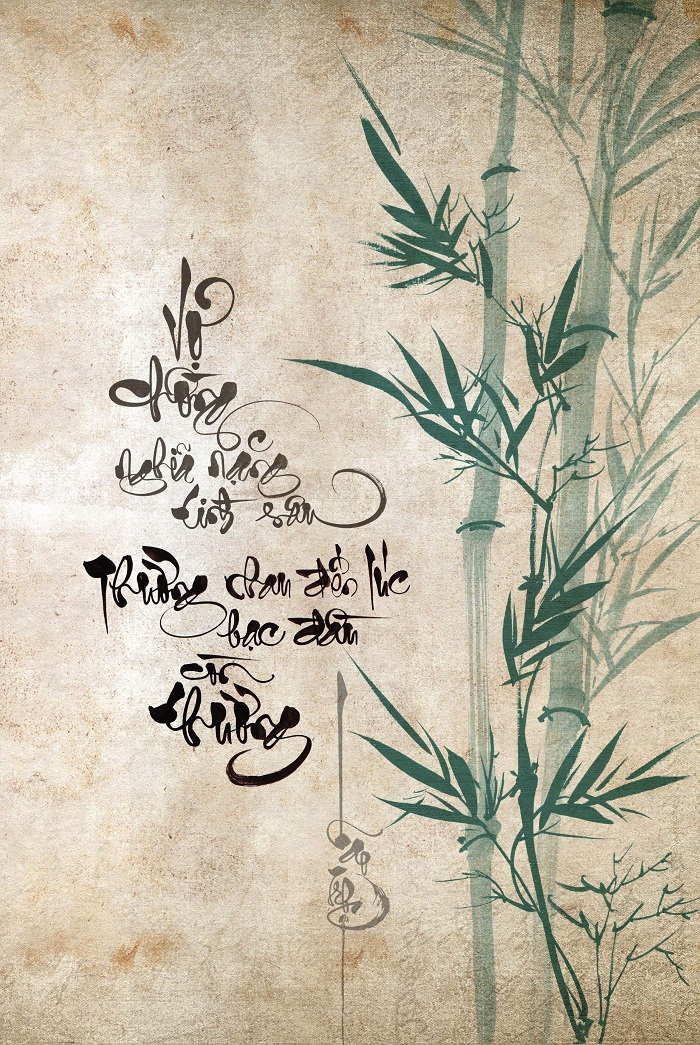 Vợ
chồng
nghĩa nặng
tình sâu
Thương nhau đến lúc
bạc đầu
còn
thương